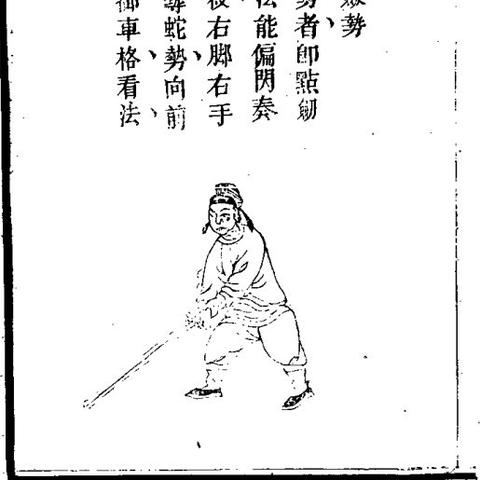 勢
勢者即點劒
法能偏閃奏
殺右脚右手
尋蛇勢向前
御車格看法